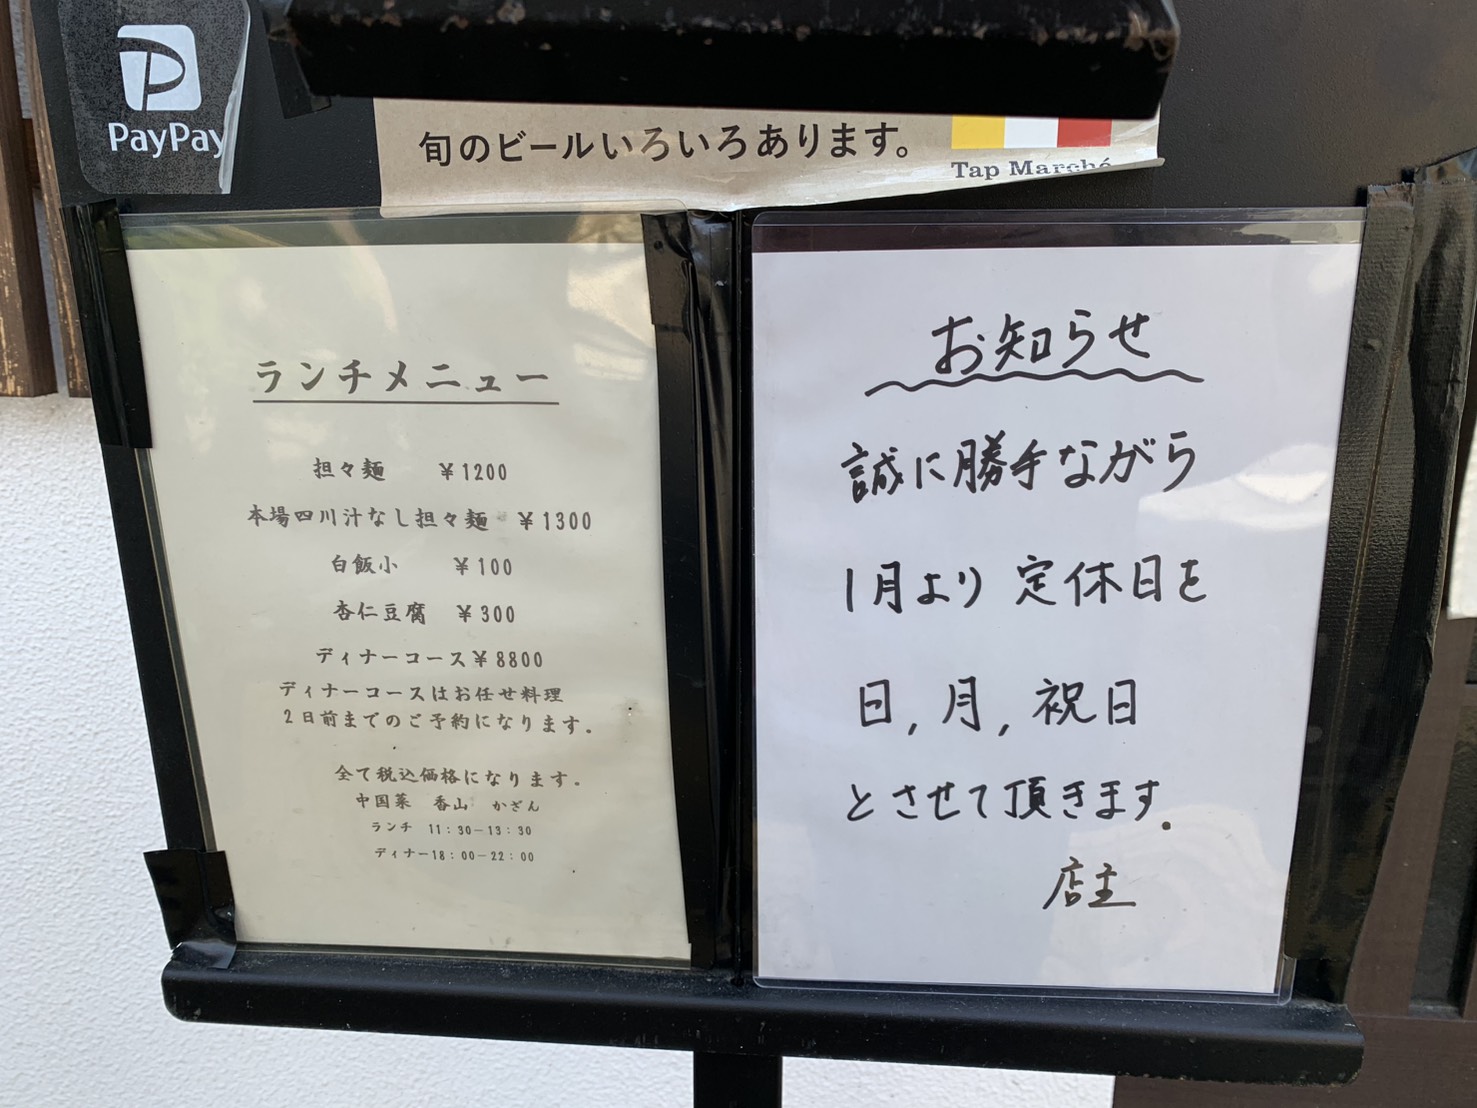 PayPay
旬のビールいろいろあります。
Tap Marché
ランチメニュー
担々麺 ￥1200
本場四川汁なし担々麺 ￥1300
白飯小 ￥100
杏仁豆腐 ￥300
ディナーコース￥8800
ディナーコースはお任せ料理
2日前までのご予約になります。
全て税込価格になります。
中国菜 香山 かざん
ランチ 11：30－13：30
ディナー18：00－22：00
お知らせ
誠に勝手ながら
1月より 定休日を
日, 月, 祝日
とさせて頂きます.
店主